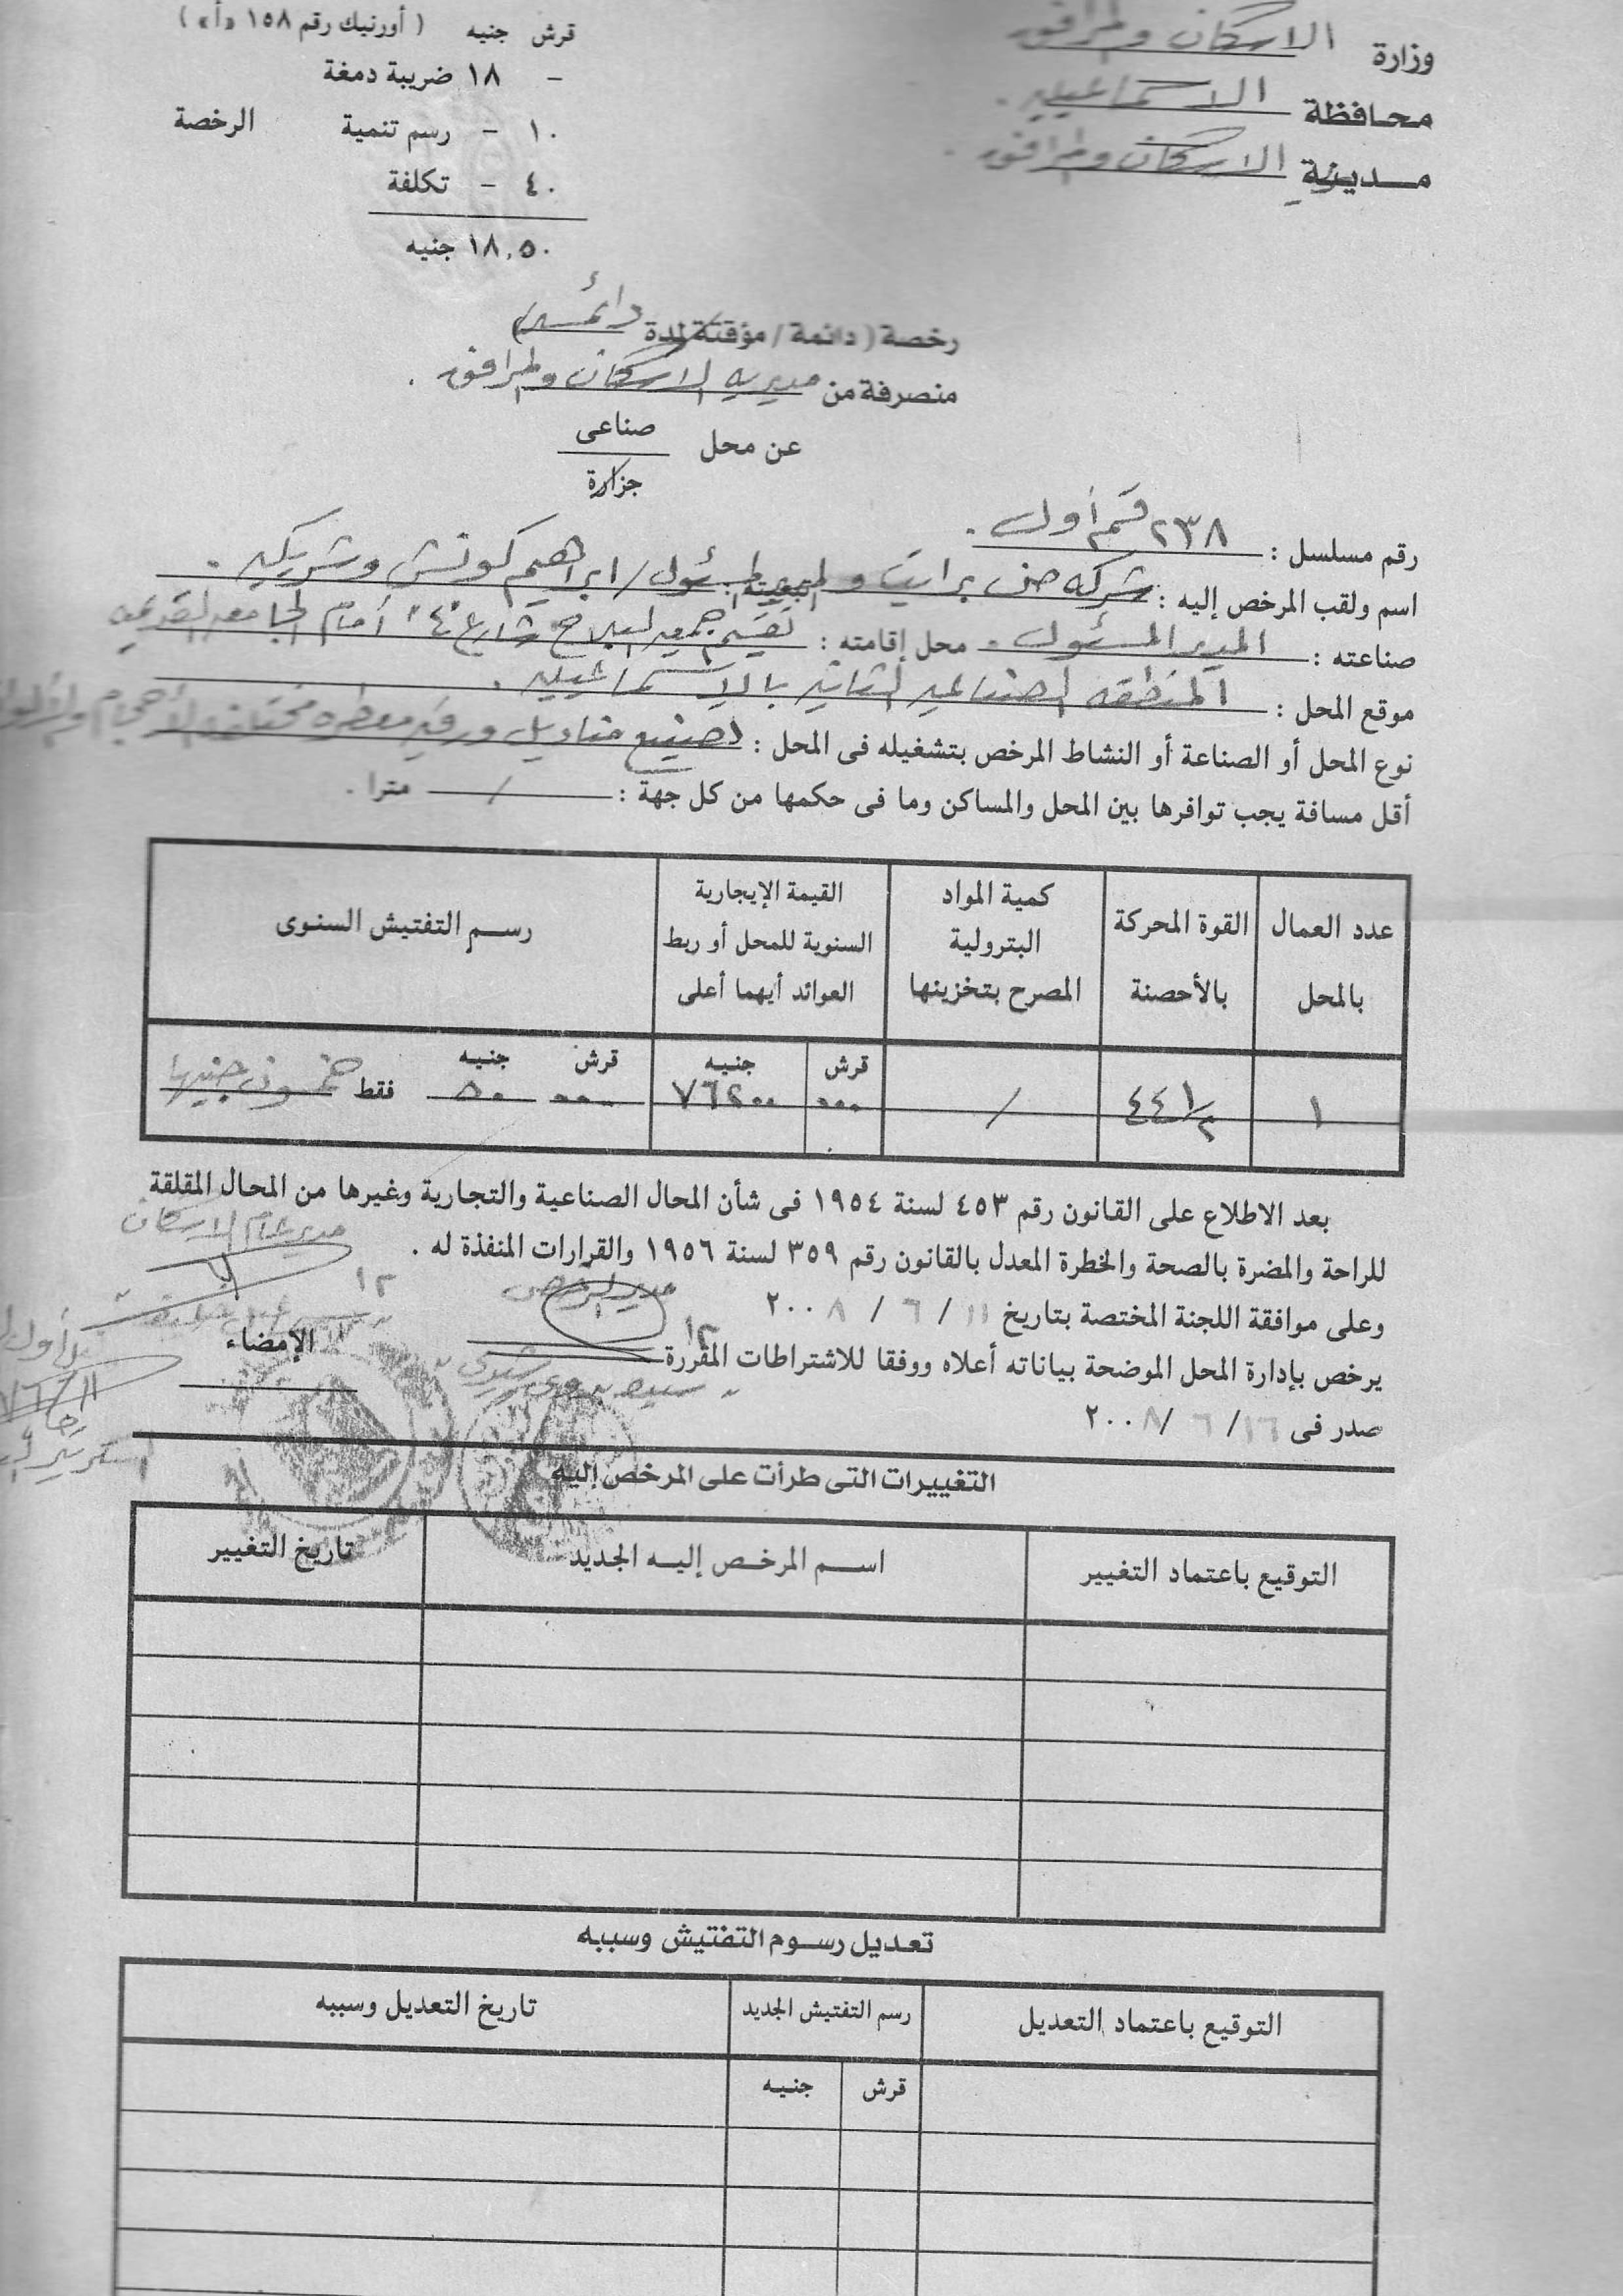 وزارة الاسكان والمرافق
محافظة الاسماعيلية .
مديرية الاسكان والمرافق .
قرش جنيه ( أورنيك رقم ١٥٨ «أ» )
- ١٨ ضريبة دمغة
١٠ - رسم تنمية الرخصة
٤٠ - تكلفة
١٨,٥٠ جنيه
رخصة ( دائمة / مؤقتة لمدة دائمــه )
منصرفة من مديريه الاسكان والمرافق .
عن محل صناعى
جزارة
رقم مسلسل : ٢٣٨ قسم أول .
اسم ولقب المرخص إليه : شركه برايت و المسئول / ابراهيم وشريكيه .
صناعته : المدير المسئول . محل إقامته : تقسيم جمعيه شارع "٤" أمام الجامعه القديمه
موقع المحل : المنطقه الصناعيه الثانيه بالاسماعيليه .
نوع المحل أو الصناعة أو النشاط المرخص بتشغيله فى المحل : تصنيع مناديل ورقيه معطره مختلفه الأحجام
أقل مسافة يجب توافرها بين المحل والمساكن وما فى حكمها من كل جهة : / مترا .
عدد العمال بالمحل
القوة المحركة بالأحصنة
كمية المواد البترولية المصرح بتخزينها
القيمة الإيجارية السنوية للمحل أو ربط العوائد أيهما أعلى
رســم التفتيش السنوى
قرش جنيه قرش جنيه
١ ٤٤ ١/٢ / ... ٧٦٢٠٠ ... ٥٠ فقط خمسون جنيها
بعد الاطلاع على القانون رقم ٤٥٣ لسنة ١٩٥٤ فى شأن المحال الصناعية والتجارية وغيرها من المحال المقلقة
للراحة والمضرة بالصحة والخطرة المعدل بالقانون رقم ٣٥٩ لسنة ١٩٥٦ والقرارات المنفذة له .
مدير عام الاسكان
مدير الرخص
وعلى موافقة اللجنة المختصة بتاريخ ١١ / ٦ / ٢٠٠٨
يرخص بإدارة المحل الموضحة بياناته أعلاه ووفقا للاشتراطات المقررة الإمضاء
صدر فى ١٦ / ٦ / ٢٠٠٨
التغييرات التى طرأت على المرخص إليه
التوقيع باعتماد التغيير اســـم المرخــص إليــه الجديد تاريخ التغيير
تعديل رسوم التفتيش وسببه
التوقيع باعتماد التعديل رسم التفتيش الجديد تاريخ التعديل وسببه
قرش جنيه